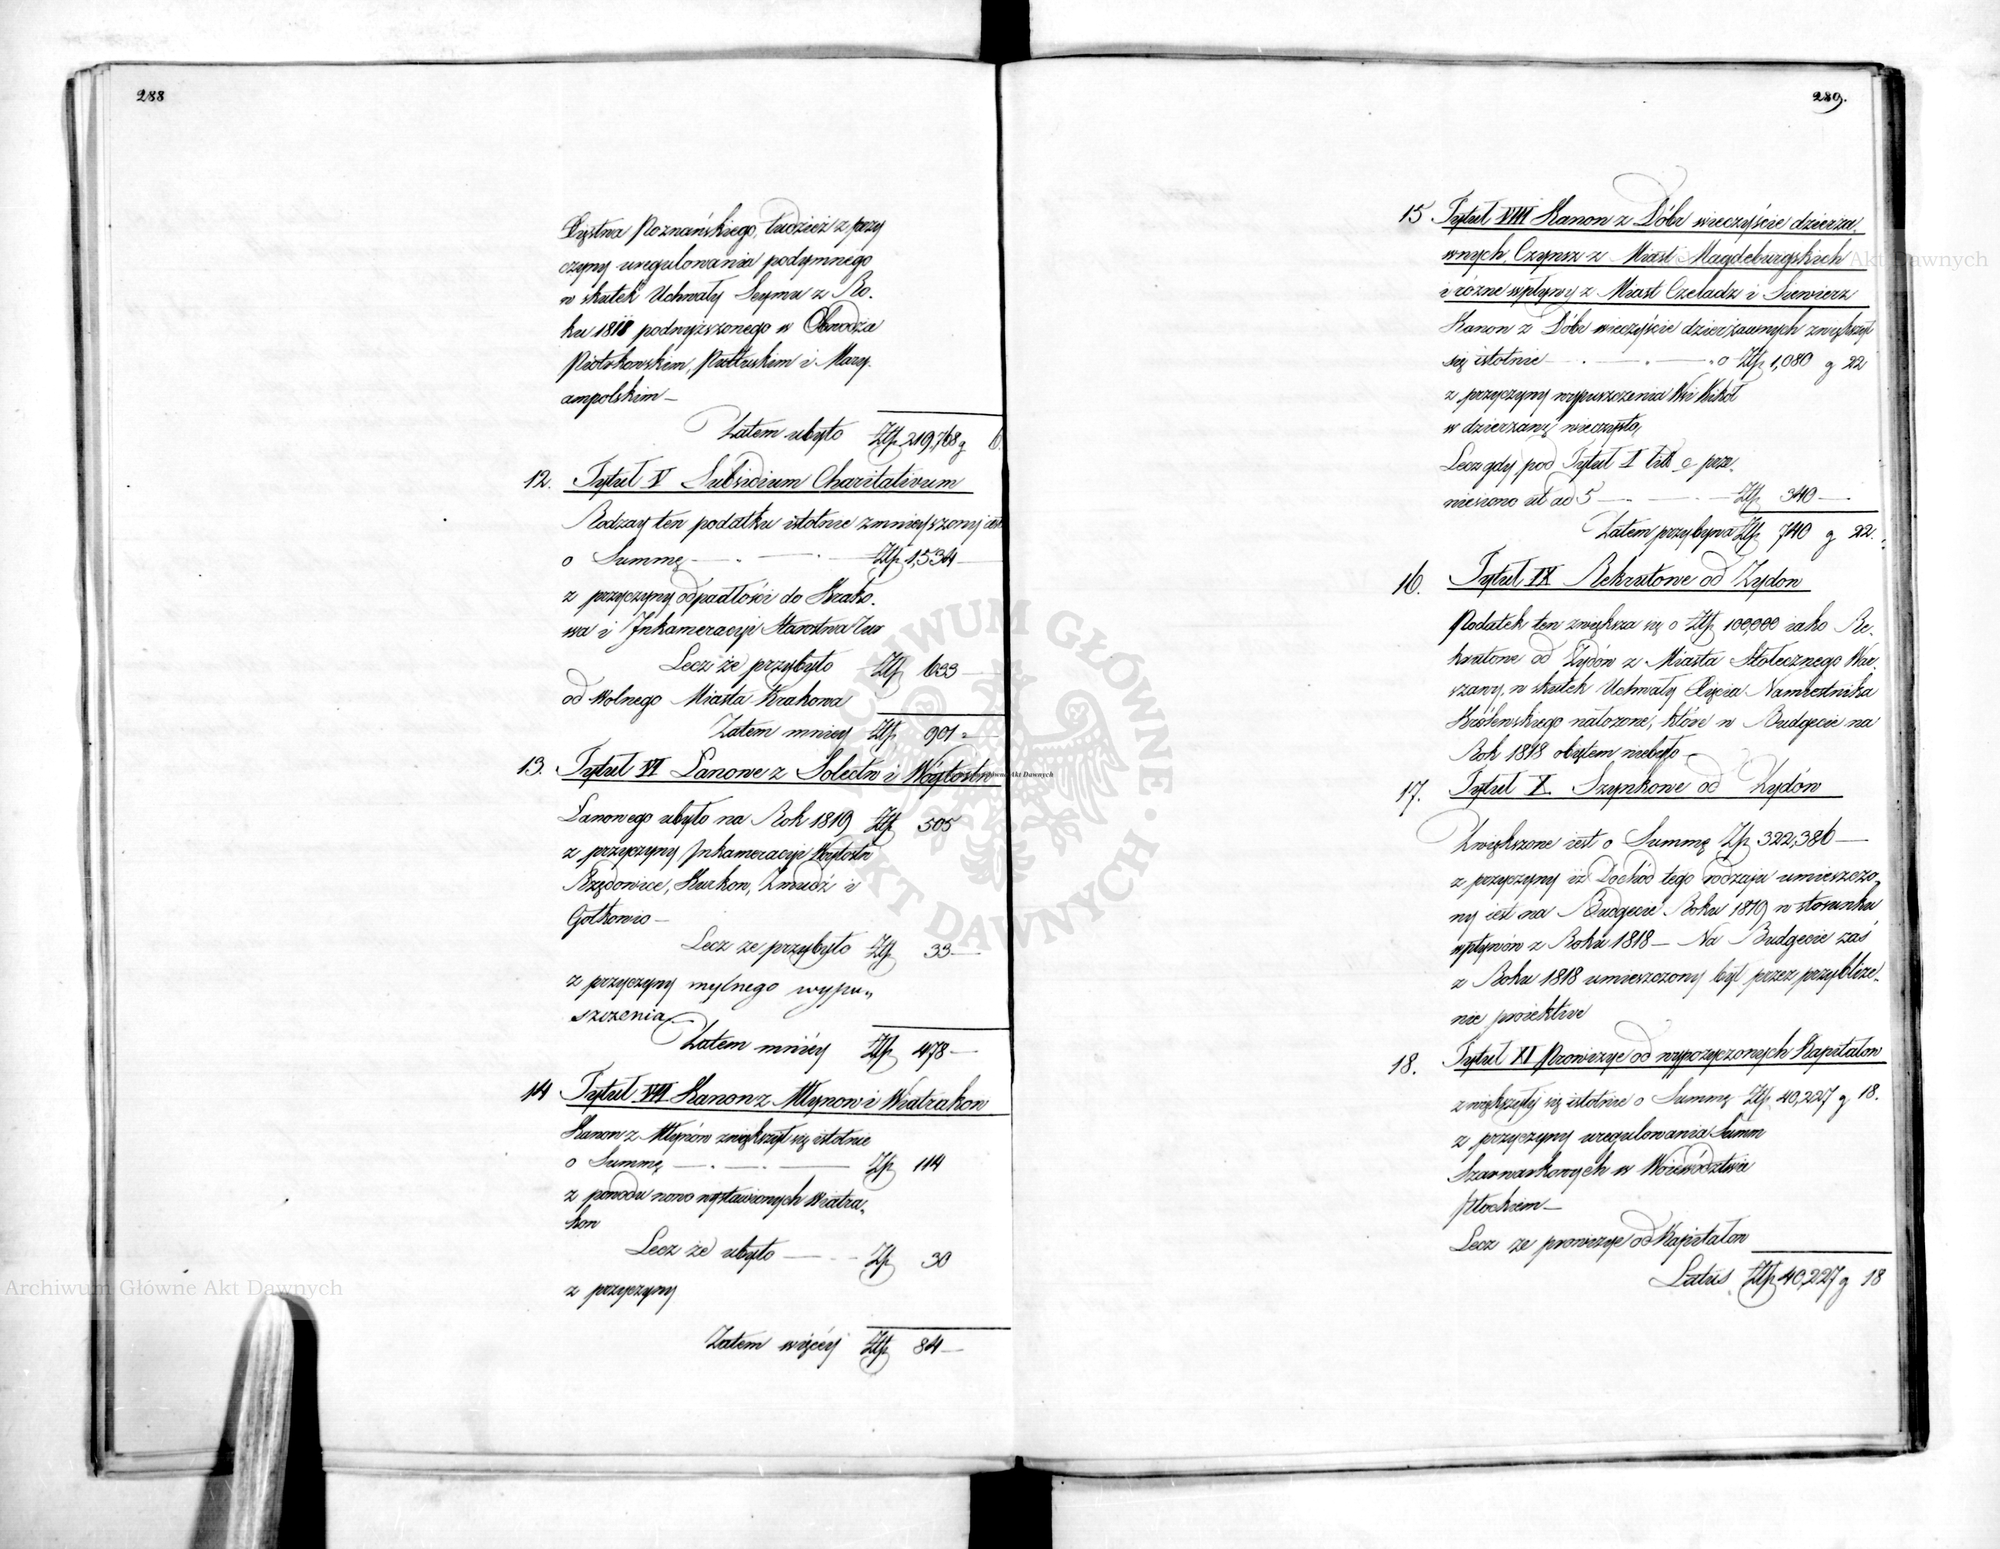 288
Xięstwa Poznańskiego, tudzież z przy
czyny uregulowania podymnego
w skutek Uchwały Seymu z Ro.
ku 1818 podwyższonego w Obwodzie
Piotrkowskim, Pułtuskim i Mary.
ampolskim —
Zatem ubyło Złp 219,768 g 6.
12. Tytuł V Subsidium Charitativum
Rodzay ten podatku istotnie zmnieyszony iest
o Summę — Złp 1,534 —
z przyczyny odpadłości do Krako.
wa i Inkameracyi Starostwa
Lecz że przybyło Złp 633 —
od Wolnego Miasta Krakowa
Zatem mniey Złp 901 „ —
13. Tytuł VI Łanowe z Sołectw i Wóytostw
Łanowego ubyło na Rok 1819 Złp 505
z przyczyny Inkameracyi Wóytostw
Rzędowice, Kurkow, Żmudź i
Gołkowio —
Lecz ze przybyło Złp 33 —
z przyczyny mylnego wypu„
szczenia
Zatem mniéy Złp 478 —
14 Tytuł VII Kanon z Młynow i Wiatrakow
Kanon z Młynów zwiększył się istotnie
o Summę — Złp 114
z powodu nowo wystawionych Wiatra„
kow
Lecz że ubyło — Złp 30
z przyczyny
Zatem więcéy Złp 84 —
289.
15 Tytuł VIII Kanon z Dóbr wieczyście dzierża.
wnych, Czynsz z Miast Magdeburgskich
i rózne wpływy z Miast Czeladz i Siewierz
Kanon z Dóbr wieczyście dzierżawnych zwiększył
się istotnie — o Złp 1,080 g 22
z przyczyny wypuszczenia Wsi
w dzierzawę wieczystą,
Lecz gdy pod Tytuł I litt c prze.
niesiono ut ad 5 — Złp 340 —
Zatem przybywa Złp 740 g 22.
16. Tytuł IX Rekrutowe od Zydow
Podatek ten zwiększa się o Złp 100,000 iako Re.
krutowe od Żydów z Miasta Stołecznego War.
szawy, w skutek Uchwały Xięcia Namiestnika
Królewskiego nałozone, które w Budgecie na
Rok 1818 obiętem niebyło —
17. Tytuł X. Szynkowe od Żydów
Zwiększone iest o Summę Złp 322,386 —
z przyczyny iż Dochód tego rodzaju umieszczo„
ny iest na Budgecie Roku 1819 w stosunku
wpływów z Roku 1818 — Na Budgecie zaś
z Roku 1818 umieszczony był przez przybliże„
nie proiektive
18. Tytuł XI Prowizye od wypożyczonych Kapitałow
zwiększyły się istotnie o Summę Złp. 40,227 g 18.
z przyczyny uregulowania Summ
Szarwarkowych w Woiewództwie
Płockiem —
Lecz ze prowizye od Kapitałow
Latus Złp 40,227 g 18
ARCHIWUM GŁÓWNE AKT DAWNYCH
Archiwum Główne Akt Dawnych